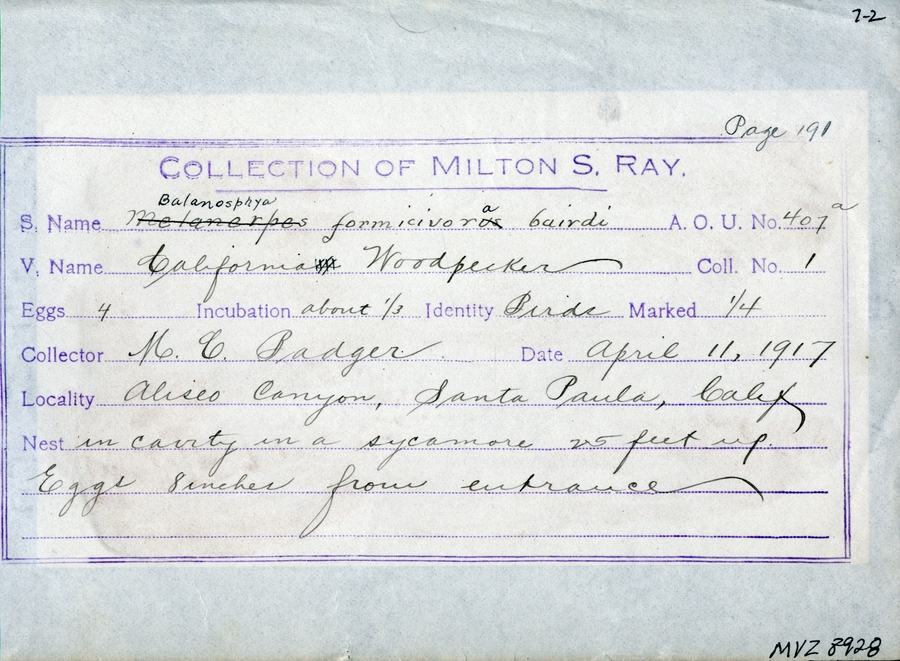 7-2
Page 191
COLLECTION OF MILTON S. RAY.
Balanosphya
S. Name Melanerpes formicivora bairdi A. O. U. No. 407a
V. Name California Woodpecker Coll. No. 1
Eggs 4 Incubation about 1/3 Identity Birds Marked 1/4
Collector M. C. Badger Date April 11, 1917
Locality Aliseo Canyon, Santa Paula, Calif
Nest in cavity in a sycamore 25 feet up.
Eggs 8 inches from entrance
MVZ 8928